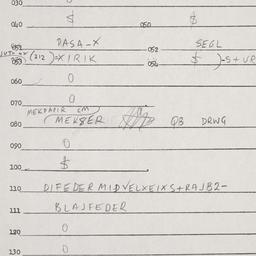 030 0
040 $ 050 $
051 DASA-X 052 SEGL
053 (212)=XIRIK 054 $ )-S+UR
060 0
070 0
MEKDAPIR CM
080 (MEKSER QB DRWG
090 0
100 $
110 DIFEDERMIDVELXEIXS+RAJB2-
111 BLAJFEDER
120 0
130 0